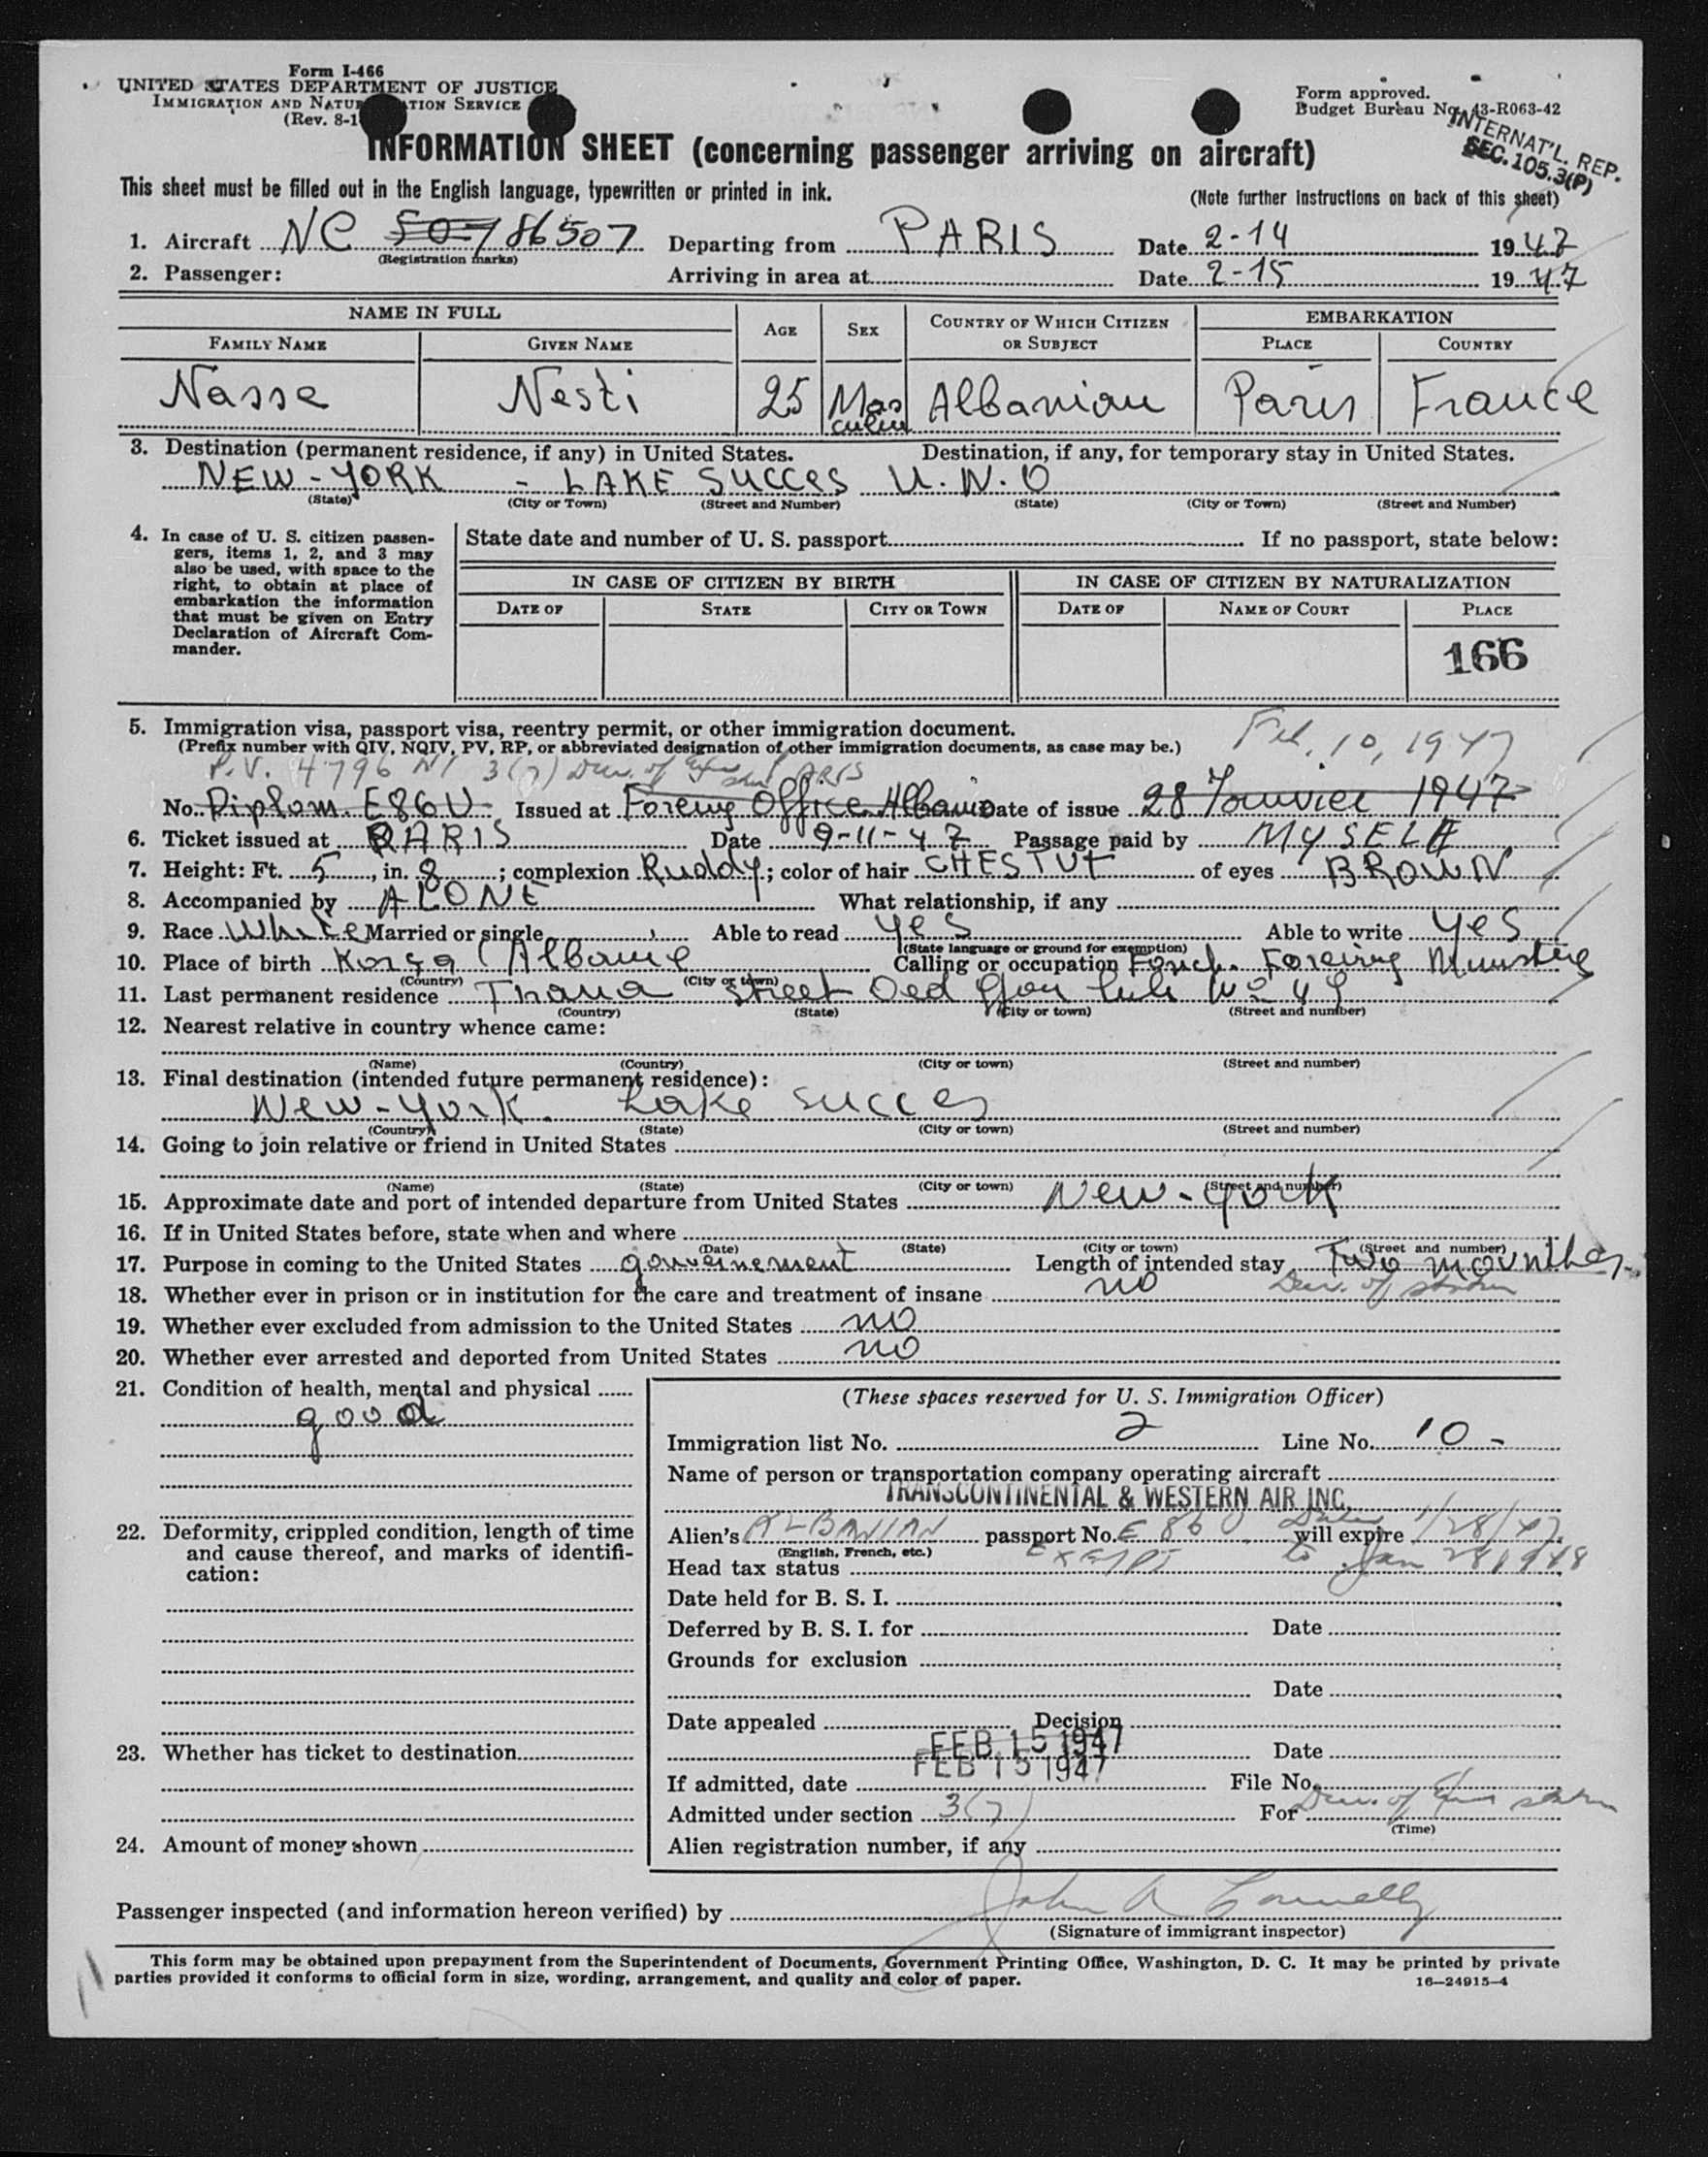 Form I-466
UNITED STATES DEPARTMENT OF JUSTICE
IMMIGRATION AND NATUR ATION SERVICE
(Rev. 8-1
Form approved.
Budget Bureau No. 43-R063-42
INTERNAT'L. REP.
SEC. 105.3(P)
INFORMATION SHEET (concerning passenger arriving on aircraft)
This sheet must be filled out in the English language, typewritten or printed in ink.
(Note further instructions on back of this sheet)
1. Aircraft NC 86507 Departing from PARIS Date 2-14 1947
(Registration marks)
2. Passenger: Arriving in area at Date 2-15 1947
NAME IN FULL AGE SEX COUNTRY OF WHICH CITIZEN OR SUBJECT EMBARKATION
FAMILY NAME GIVEN NAME PLACE COUNTRY
Nasse Nesti 25 Mas culin Albanian Paris France
3. Destination (permanent residence, if any) in United States. Destination, if any, for temporary stay in United States.
NEW-YORK - LAKE SUCCES U.N.O
(State) (City or Town) (Street and Number) (State) (City or Town) (Street and Number)
4. In case of U. S. citizen passengers, items 1, 2, and 3 may also be used, with space to the right, to obtain at place of embarkation the information that must be given on Entry Declaration of Aircraft Commander.
State date and number of U. S. passport If no passport, state below:
IN CASE OF CITIZEN BY BIRTH IN CASE OF CITIZEN BY NATURALIZATION
DATE OF STATE CITY OR TOWN DATE OF NAME OF COURT PLACE
166
5. Immigration visa, passport visa, reentry permit, or other immigration document.
(Prefix number with QIV, NQIV, PV, RP, or abbreviated designation of other immigration documents, as case may be.)
Feb. 10, 1947
P.V. 4796 NI 3(7) Dur. of PARIS
No. Diplom. E860 Issued at Foreing Office Albania Date of issue 28 Janvier 1947
6. Ticket issued at PARIS Date 9-11-47 Passage paid by MYSELF
7. Height: Ft. 5, in. 8; complexion Ruddy; color of hair CHESTUT of eyes BROWN
8. Accompanied by ALONE What relationship, if any
9. Race White Married or single Able to read yes Able to write yes
(State language or ground for exemption)
10. Place of birth Korça (Albanie Calling or occupation Foreing Ministrie
(Country) (City or town)
11. Last permanent residence Tirana Street No 49
(Country) (State) (City or town) (Street and number)
12. Nearest relative in country whence came:
(Name) (Country) (City or town) (Street and number)
13. Final destination (intended future permanent residence):
New-York. Lake Succes
(Country) (State) (City or town) (Street and number)
14. Going to join relative or friend in United States
(Name) (State) (City or town) (Street and number)
15. Approximate date and port of intended departure from United States New-York
16. If in United States before, state when and where
(Date) (State) (City or town) (Street and number)
17. Purpose in coming to the United States gouvernement Length of intended stay Two mounthes
18. Whether ever in prison or in institution for the care and treatment of insane no Dur. of status
19. Whether ever excluded from admission to the United States no
20. Whether ever arrested and deported from United States no
21. Condition of health, mental and physical
good
22. Deformity, crippled condition, length of time and cause thereof, and marks of identification:
23. Whether has ticket to destination
24. Amount of money shown
(These spaces reserved for U. S. Immigration Officer)
Immigration list No. 2 Line No. 10 -
Name of person or transportation company operating aircraft
TRANSCONTINENTAL & WESTERN AIR INC.
Alien's ALBANIAN passport No. E 860 Date will expire 1/28/47
(English, French, etc.)
Head tax status EXEMPT to Jan 28 1948
Date held for B. S. I.
Deferred by B. S. I. for Date
Grounds for exclusion
Date
Date appealed Decision
FEB 15 1947 Date
FEB 15 1947
If admitted, date File No.
Admitted under section 3(7) For Dur. of status
(Time)
Alien registration number, if any
Passenger inspected (and information hereon verified) by John A Connelly
(Signature of immigrant inspector)
This form may be obtained upon prepayment from the Superintendent of Documents, Government Printing Office, Washington, D. C. It may be printed by private
parties provided it conforms to official form in size, wording, arrangement, and quality and color of paper. 16—24915-4